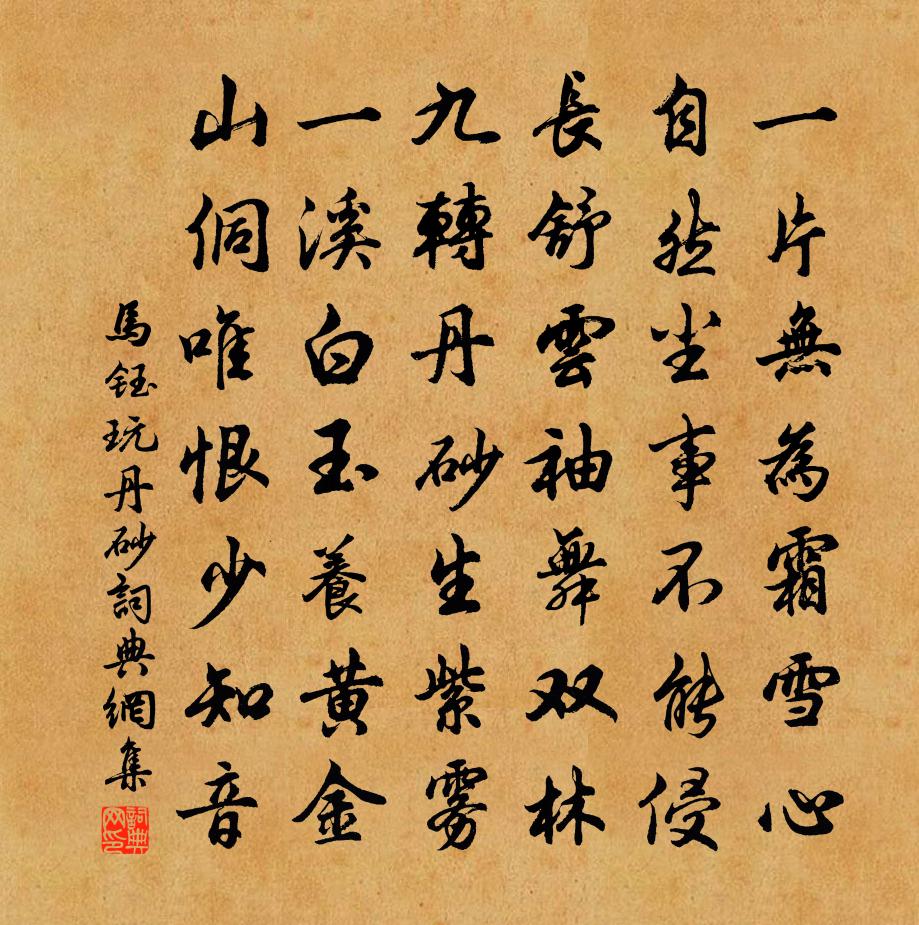 一片無為霜雪心
自然尘事不能侵
長舒雲袖舞双林
九轉丹砂生紫雾
一溪白玉養黄金
山侗唯恨少知音
馬鈺玩丹砂詞典網集
詞典網印